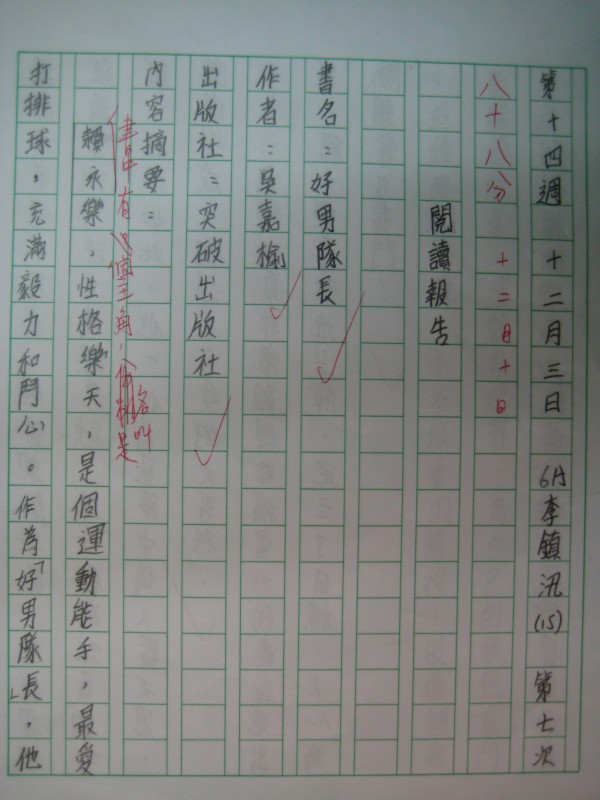 第十四週 十二月三日 6A 李鎮汛 (15) 第七次
八十八分 十二月十日
閱讀報告
書名：好男隊長
作者：吳嘉榆
出版社：突破出版社
內容摘要：
書中有 個主角，分別是
名叫
賴永樂，性格樂天，是個運動能手，最愛
打排球，充滿毅力和鬥心。作為「好男隊長」，他